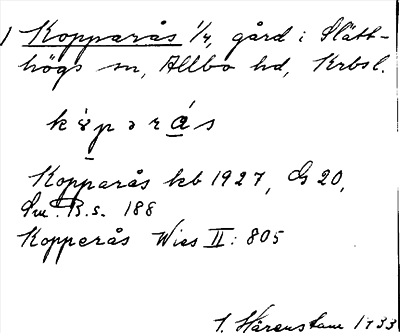 1 Kopparås 1/4, gård i Slätt-
högs sn, Allbo hd, Krbsl.
kopərás
Kopparås kb 1927, GS 20,
Sm. B.s. 188
Kopperås Wies II: 805
Härenstam 1933